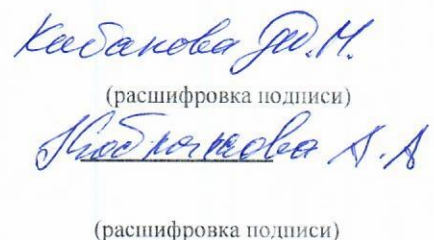 Кабанова Ю.М.
(расшифровка подписи)
А.А
(расшифровка подписи)